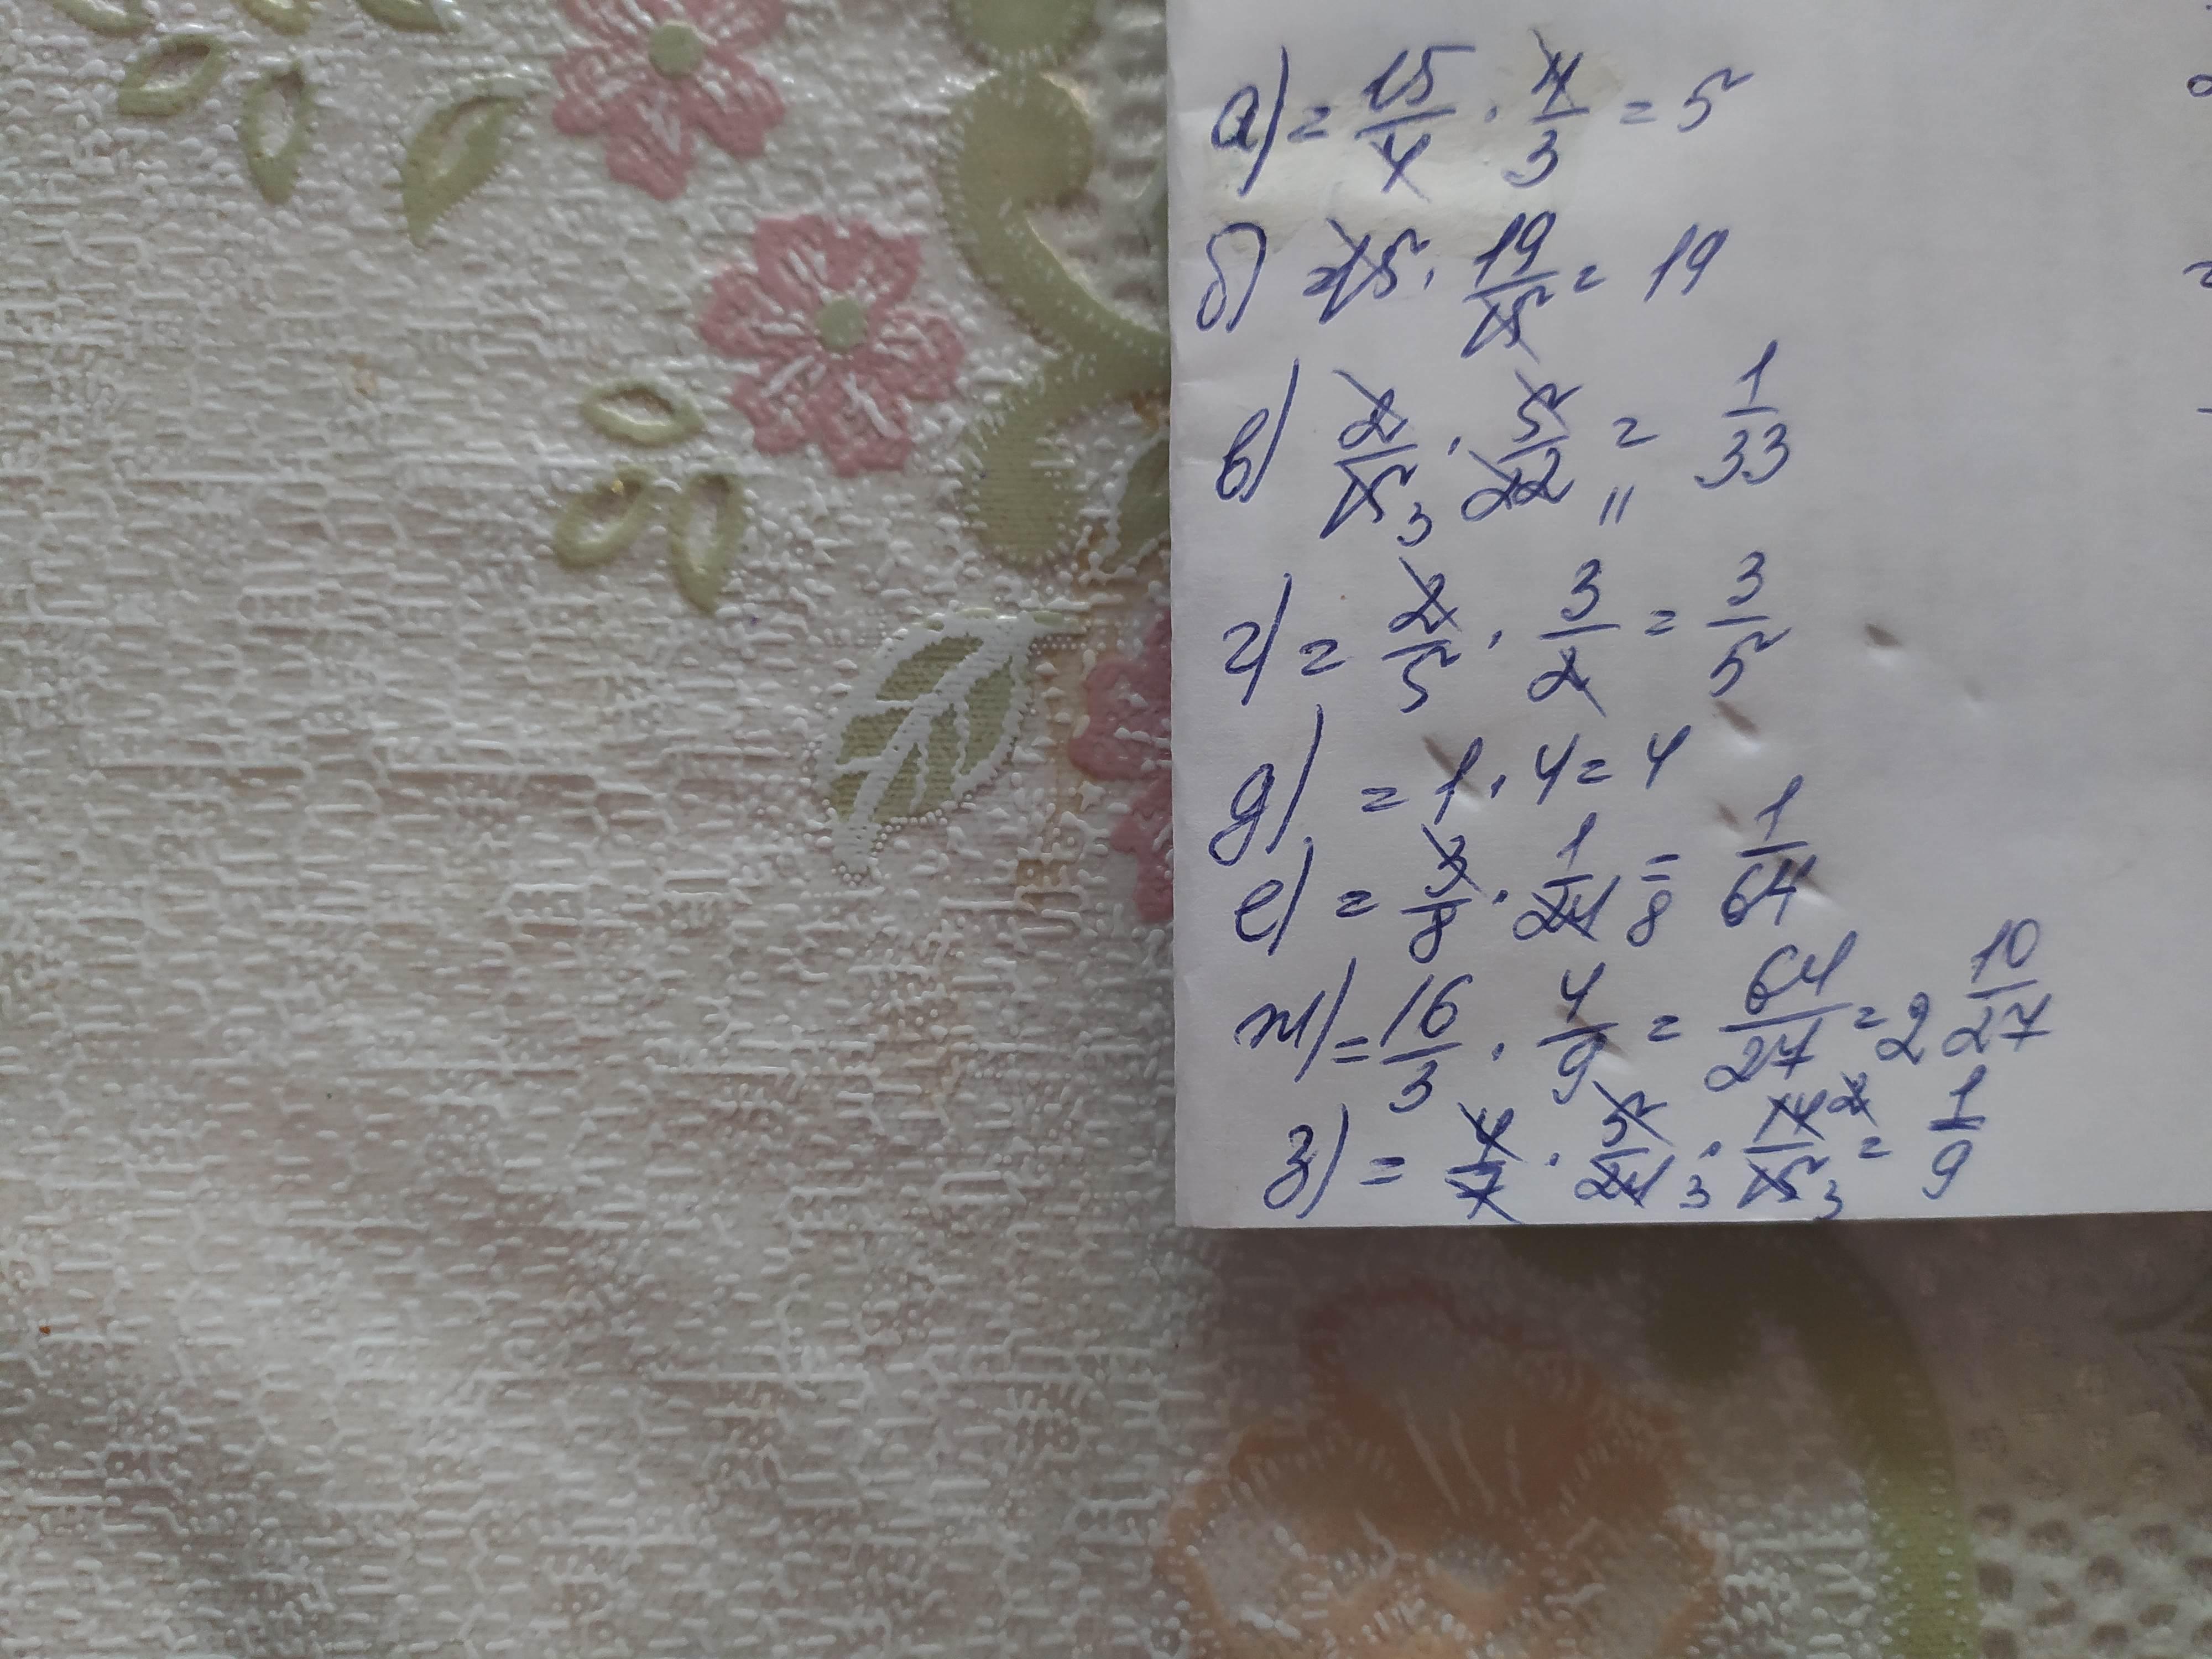 а) = 15/4 · 4/3 = 5
б) = 15 · 19/15 = 19
в) 2/15 3 · 5/22 11 = 1/33
г) = 2/5 · 3/2 = 3/5
д) = 1 · 4 = 4
е) = 3/8 · 1/24 8 = 1/64
ж) = 16/3 · 4/9 = 64/27 = 2 10/27
з) = 4/7 · 5/24 3 · 14 2/15 3 = 1/9